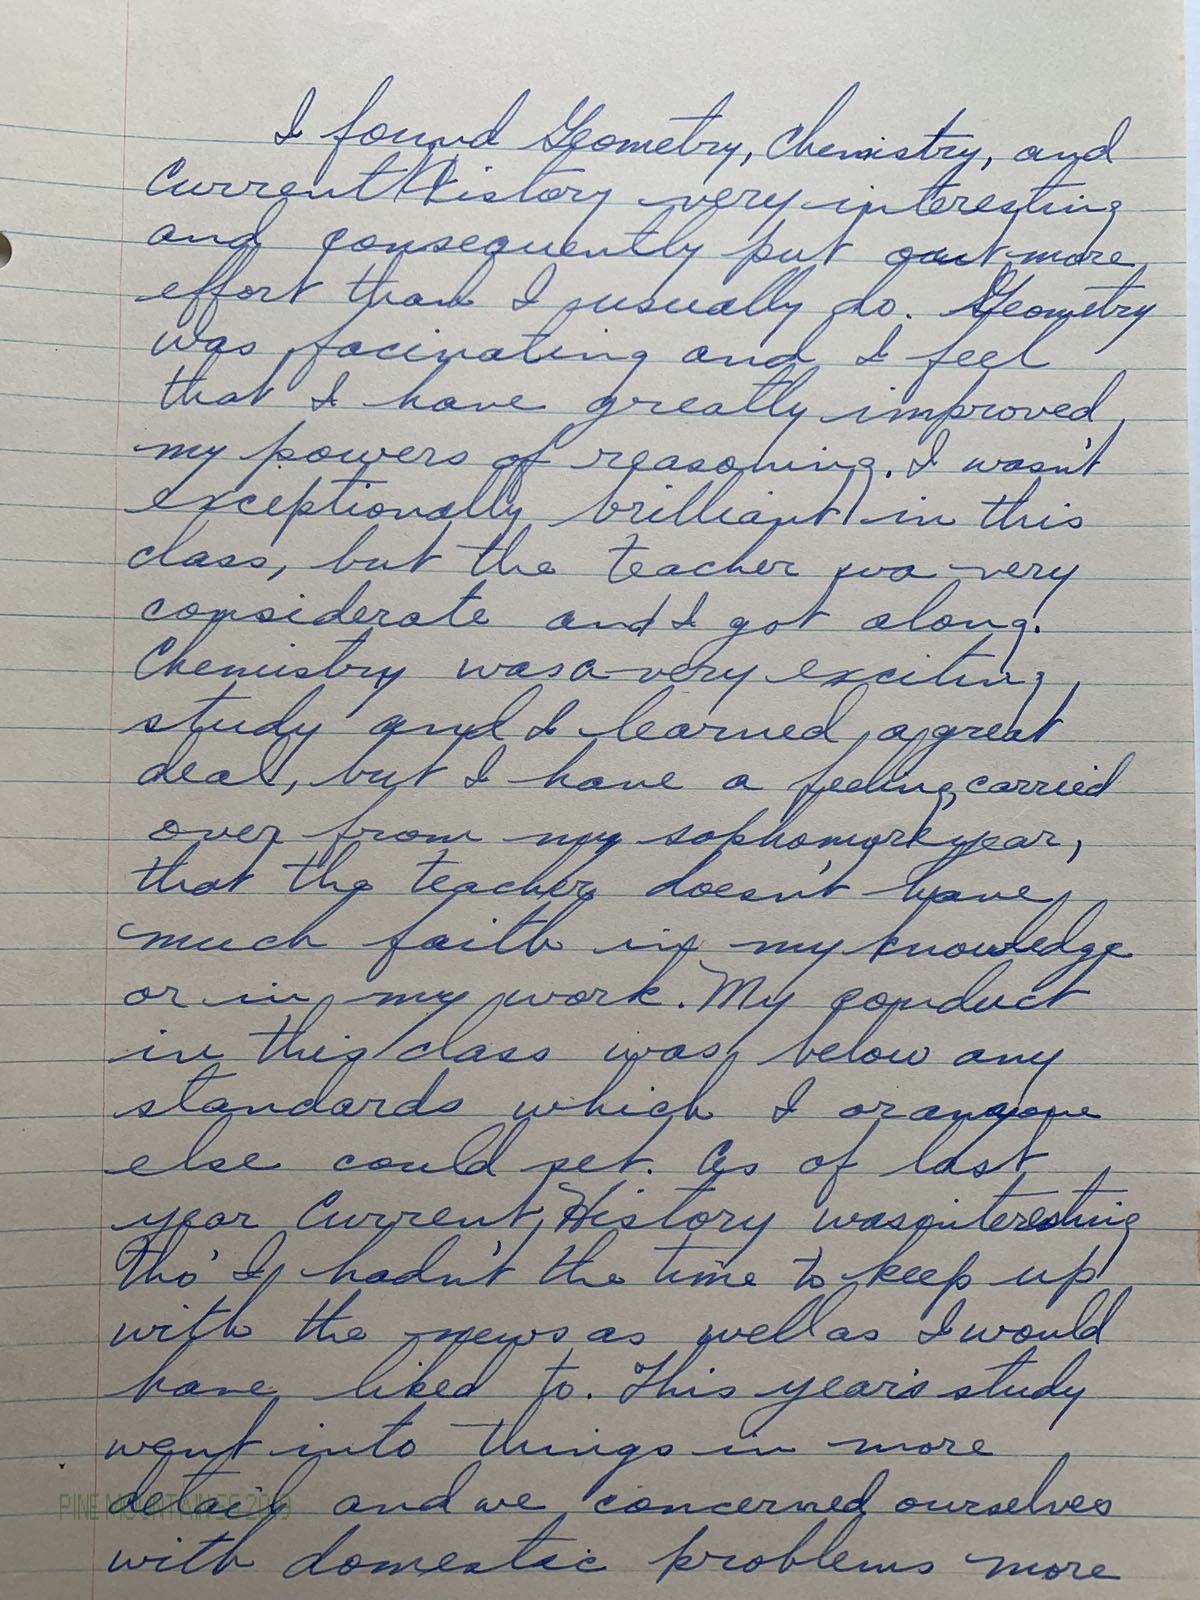 I found Geometry, Chemistry, and
Current History very interesting
and consequently put out more
effort than I usually do. Geometry
was facinating and I feel
that I have greatly improved
my powers of reasoning. I wasn't
exceptionally brilliant in this
class, but the teacher wa very
considerate and I got along.
Chemistry was a very exciting
study and I learned a great
deal, but I have a feeling, carried
over from my sophomore year,
that the teacher doesn't have
much faith in my knowledge
or in my work. My conduct
in this class was below any
standards which I or anyone
else could set. As of last
year Current History was interesting
tho' I hadn't the time to keep up
with the news as well as I would
have liked to. This year's study
went into things in more
detail and we concerned ourselves
with domestic problems more